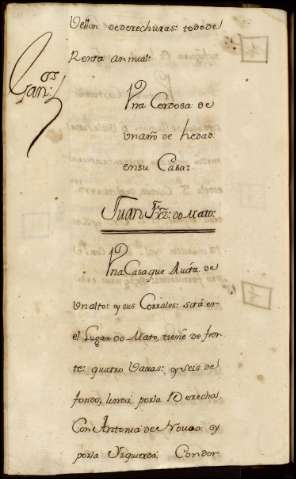 Vellon de derechuras: todo de
Renta annual:
Gan.os
Vna Cerdosa de
Un año de hedad
en su Casa:
Juan Frz: do Mato:
Vna Casa que havita de
Un alto: y sus Corrales: está en
el Lugar do Mato, tiene de fren-
te: quatro varas: y seis de
fondo, lenda por la Derecha.
Con Antonia de Nouao: y
por la Yzquerda: Con Dor-